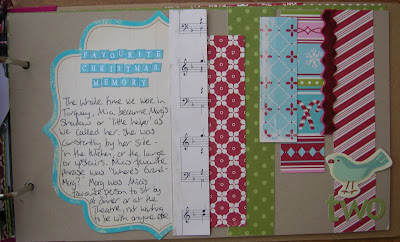 FAVOURITE
CHRISTMAS
MEMORY
The whole time we were in
Torquay, Mia became Marg's
Shadow or 'little helper' as
we called her. She was
constantly by her side -
in the kitchen, or the lounge
or upstairs. Mia's favourite
phrase was "where's
Marg?" Marg was Mia's
favourite person to sit by
at dinner or at the
theatre, not wanting
to be with anyone else
two